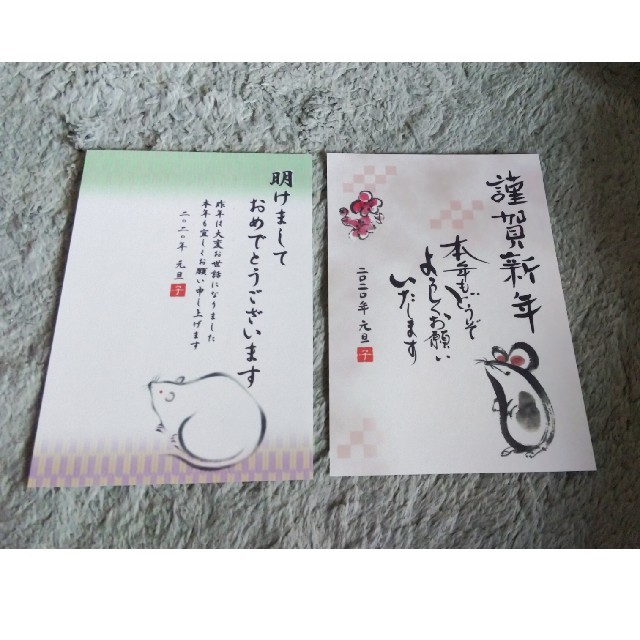 明けまして
おめでとうございます
昨年は大変お世話になりました
本年も宜しくお願い申し上げます
二〇二〇年 元旦
子
謹賀新年
本年もどうぞ
よろしくお願い
いたします
二〇二〇年 元旦
子